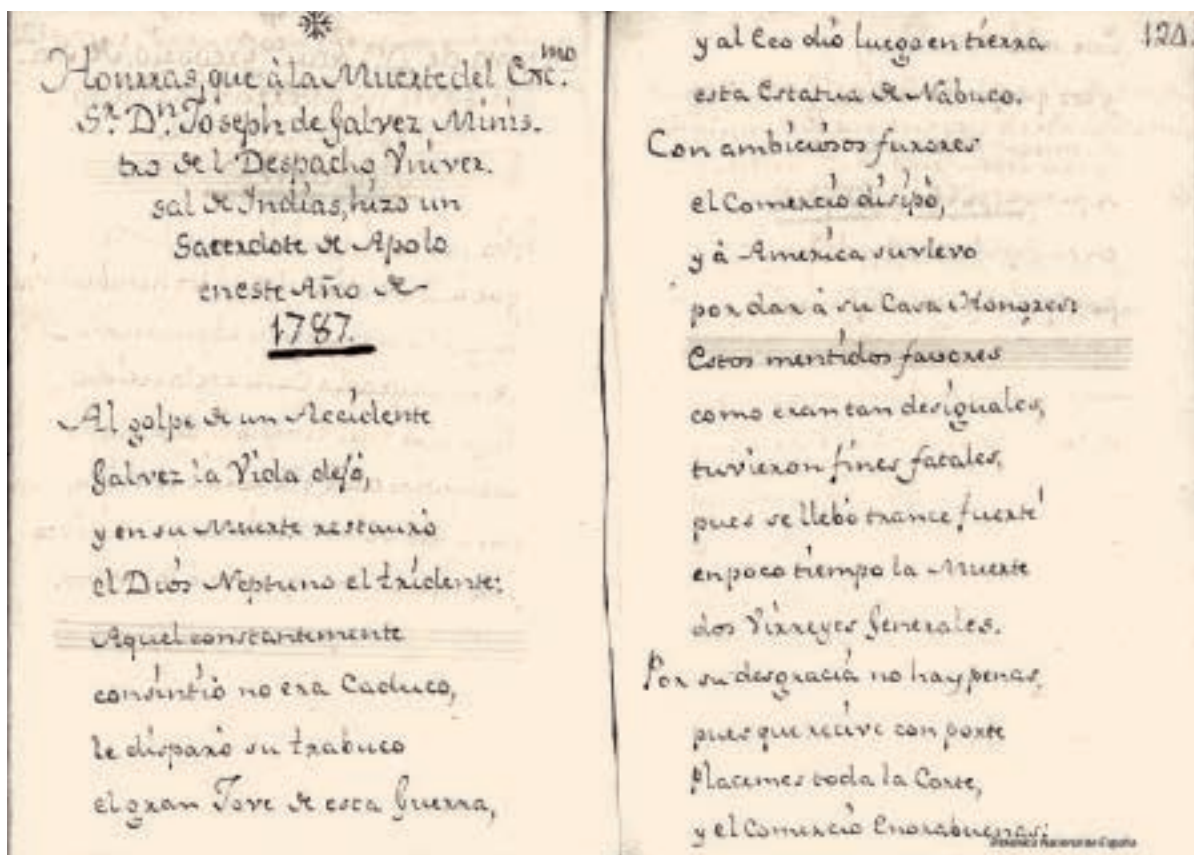 Honrras, que à la Muerte del Exc.mo
S.r D.n Joseph de Galvez Minis.
tro del Despacho Vniver.
sal de Indias, hizo un
Sacerdote de Apolo
en este Año de
1787.
Al golpe de un Accidente
Galvez la Vida dejó,
y en su Muerte restauró
el Diós Neptuno el tridente:
Aquel constantemente
consintió no era Caduco,
le disparó su trabuco
el gran Jove de esta Guerra,
y al Ceo dió luego en tierra
esta Estatua de Nabuco.
Con ambiciosos furores
el Comercio disipó,
y à America survlevo
por dar à su Casa Honores:
Estos mentidos favores
como eran tan desiguales,
tuvieron fines fatales,
pues se llebó trance fuerte
en poco tiempo la Muerte
dos Virreyes Generales.
Por su desgracia no hay penas,
pues que recive con porte
Placemes toda la Corte,
y el Comercio Enorabuenas:
124.
Biblioteca Nacional de España